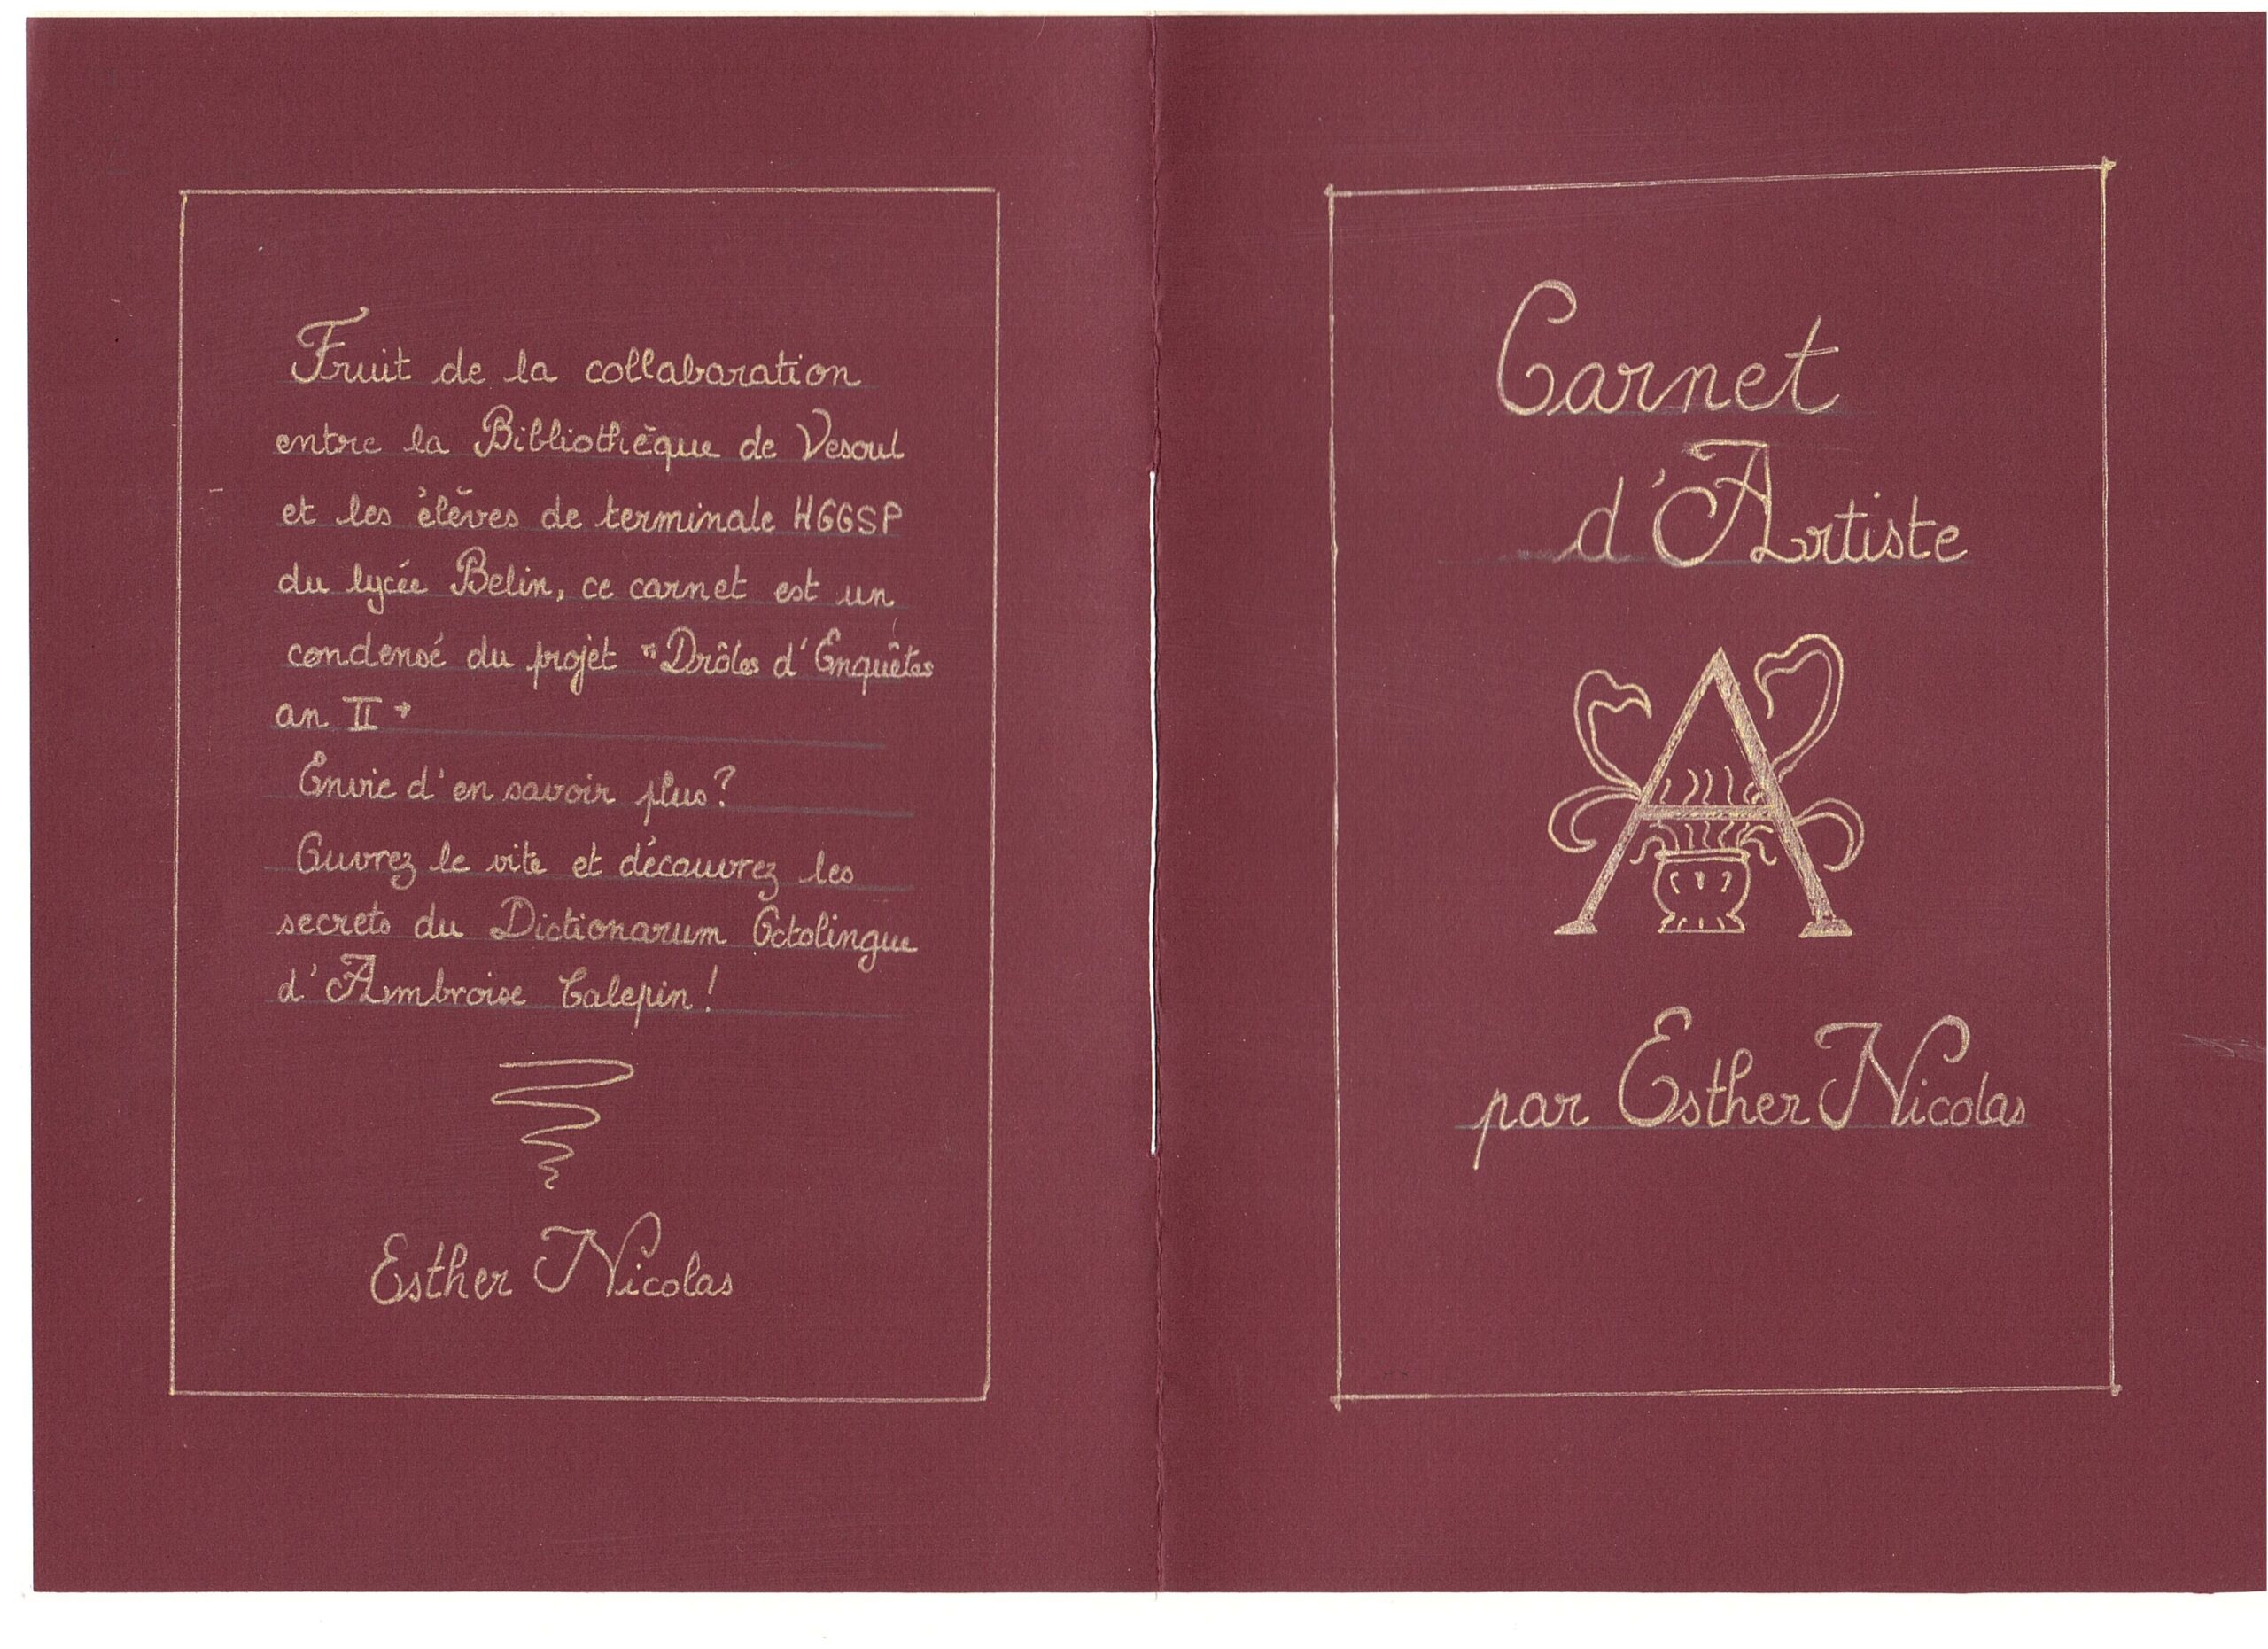 Fruit de la collabaration
entre la Bibliothèque de Vesoul
et les élèves de terminale HGGSP
du lycée Belin, ce carnet est un
condensé du projet "Drôles d'Enquêtes
an II"
Envie d'en savoir plus?
Ouvrez le vite et découvrez les
secrets du Dictionarum Octolingue
d'Ambroise Calepin!
Esther Nicolas
Carnet
d'Artiste
A
par Esther Nicolas